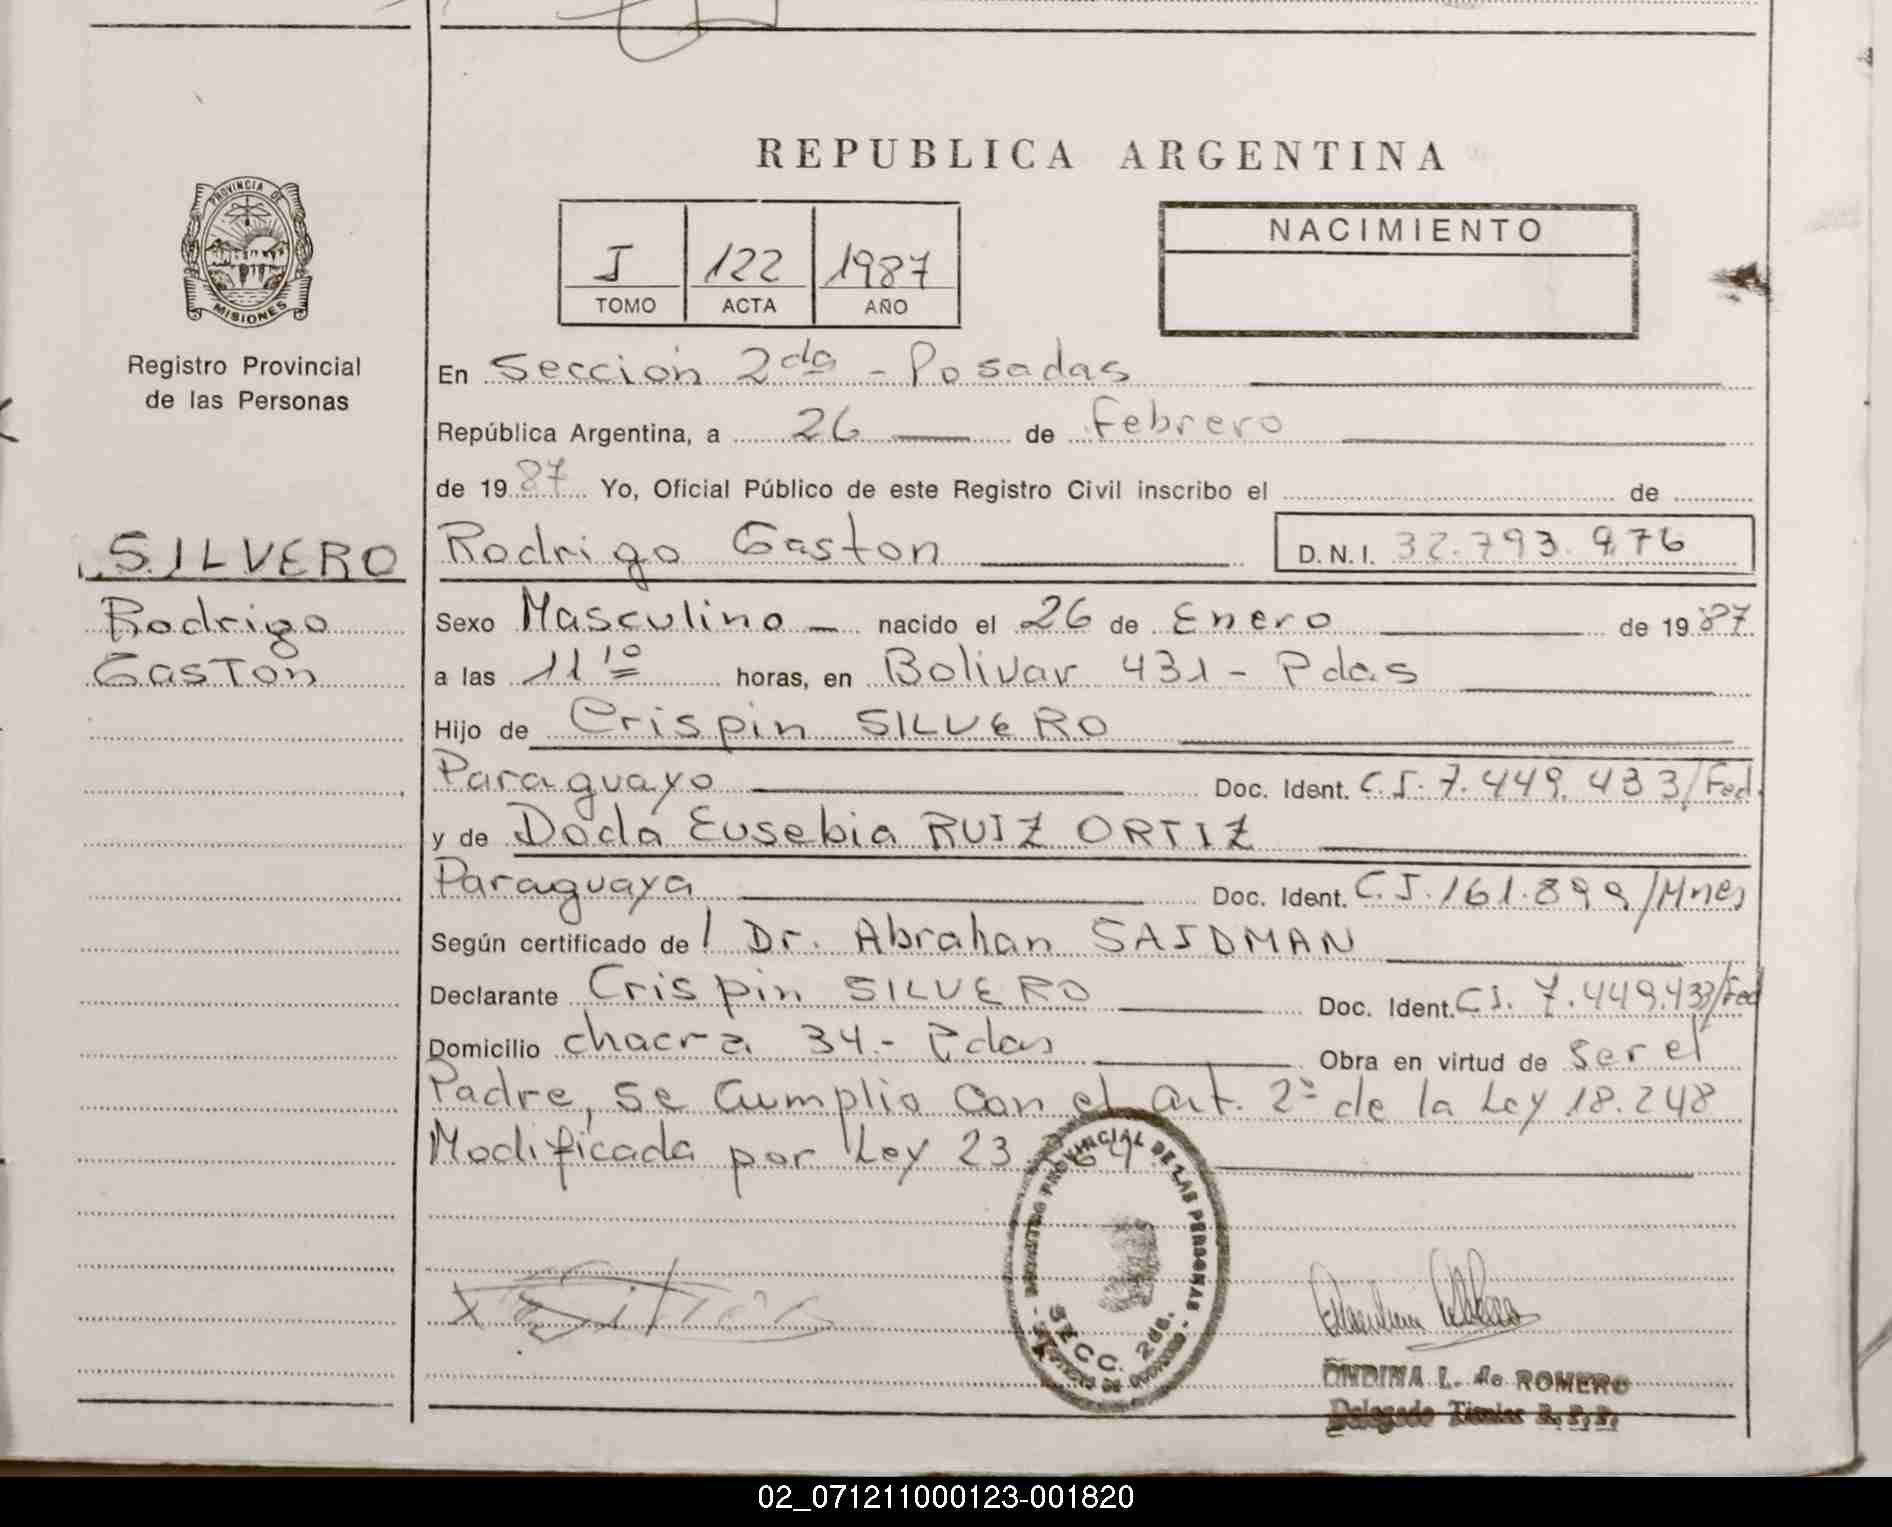 REPUBLICA ARGENTINA
PROVINCIA DE MISIONES
Registro Provincial
de las Personas
I 122 1987
TOMO ACTA AÑO
NACIMIENTO
En Sección 2da - Posadas
República Argentina, a 26 de Febrero
de 1987 Yo, Oficial Público de este Registro Civil inscribo el de
SILVERO
Rodrigo
Gaston
Rodrigo Gaston D.N.I. 32.793.976
Sexo Masculino nacido el 26 de Enero de 1987
a las 11 10 horas, en Bolivar 431 - Pdas
Hijo de Crispin SILVERO
Paraguayo Doc. Ident. C.I. 7.449.433/Fed.
y de Doda Eusebia RUIZ ORTIZ
Paraguaya Doc. Ident. C.I. 161.899/Mnes
Según certificado de Dr. Abrahan SAIDMAN
Declarante Crispin SILVERO Doc. Ident. C.I. 7.449.433/Fed
Domicilio chacra 34 - Pdas Obra en virtud de ser el
Padre, se Cumplio con el art. 2º de la Ley 18.248
Modificada por Ley 23
REGISTRO PROVINCIAL DE LAS PERSONAS
SECC. 2da.
ONDINA L. de ROMERO
Delegado Titular R.P.P.
02_071211000123-001820